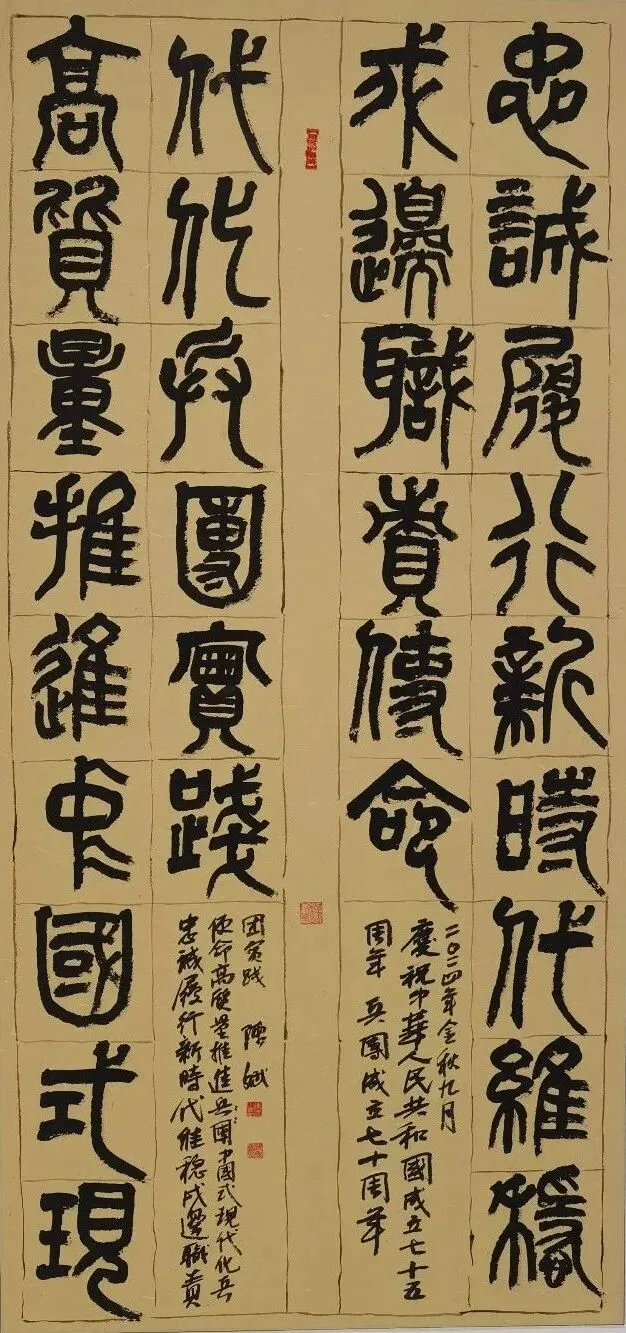 忠誠履行新時代維穩
戍邊職責使命
二〇二四年金秋九月
慶祝中華人民共和國成立七十五
周年 兵團成立七十周年
高質量推進中國式現
代化兵團實踐
忠誠履行新時代維穩戍邊職責
使命高质量推进兵團中國式現代化兵
团实践 陳斌